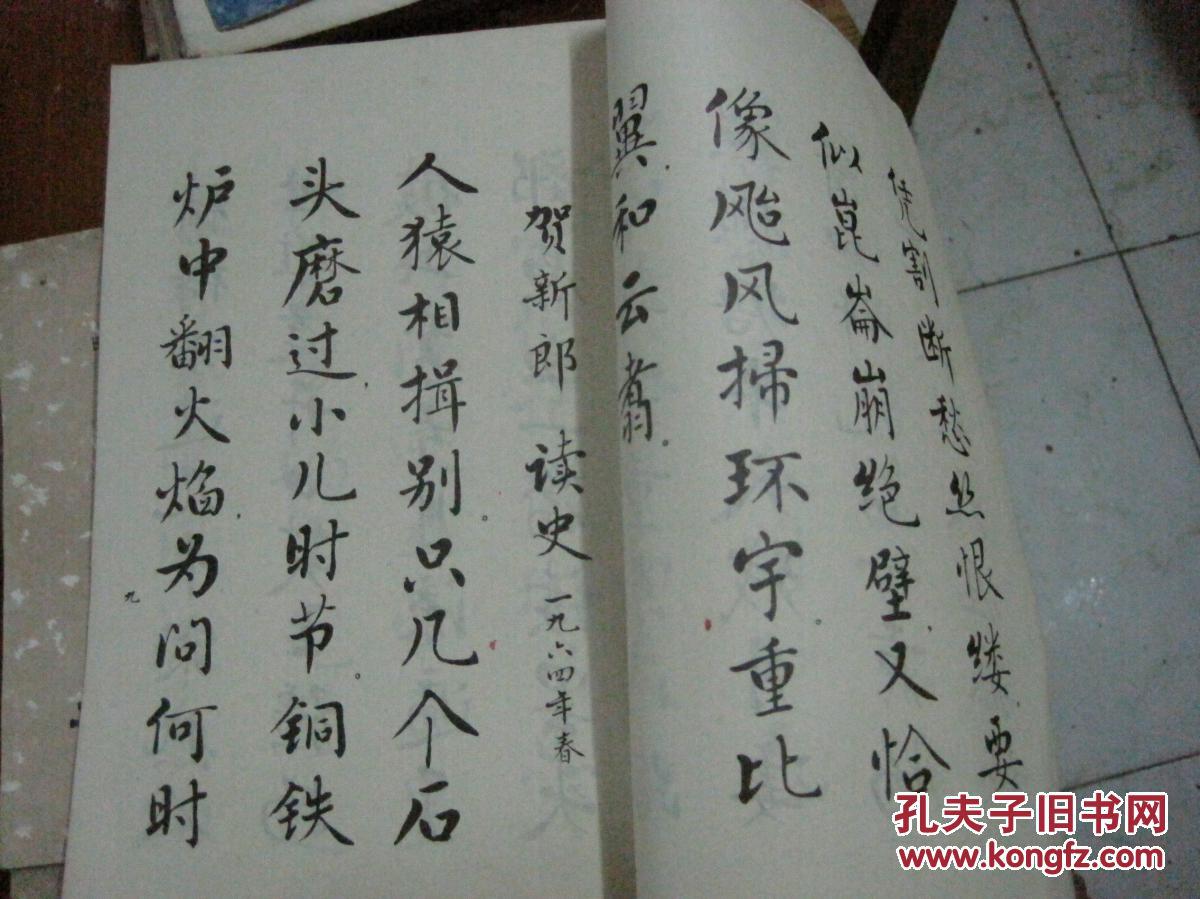 凭割断愁丝恨缕要
似崑崙崩绝壁又恰
像飚风掃环宇重比
翼和云翥
贺新郎 读史 一九六四年春
人猿相揖别。只几个石
头磨过，小儿时节。铜铁
炉中翻火焰，为问何时
九
孔夫子旧书网
www.kongfz.com